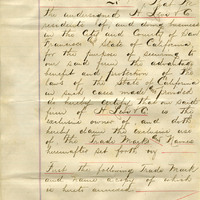 That We
the undersigned
residents of, and doing business
in the City and County of San
Francisco & State of California
for the purpose of securing to
our said firm the advantage
benefit and protection of the
laws of the State of California
in such case made & provided
do hereby certify that our said
firm of is the
exclusive owner of and doth
hereby claim the exclusive use
of the Trade Marks & Names
hereinafter set forth viz
First the following Trade Mark
and name a copy of which
is hereto annexed